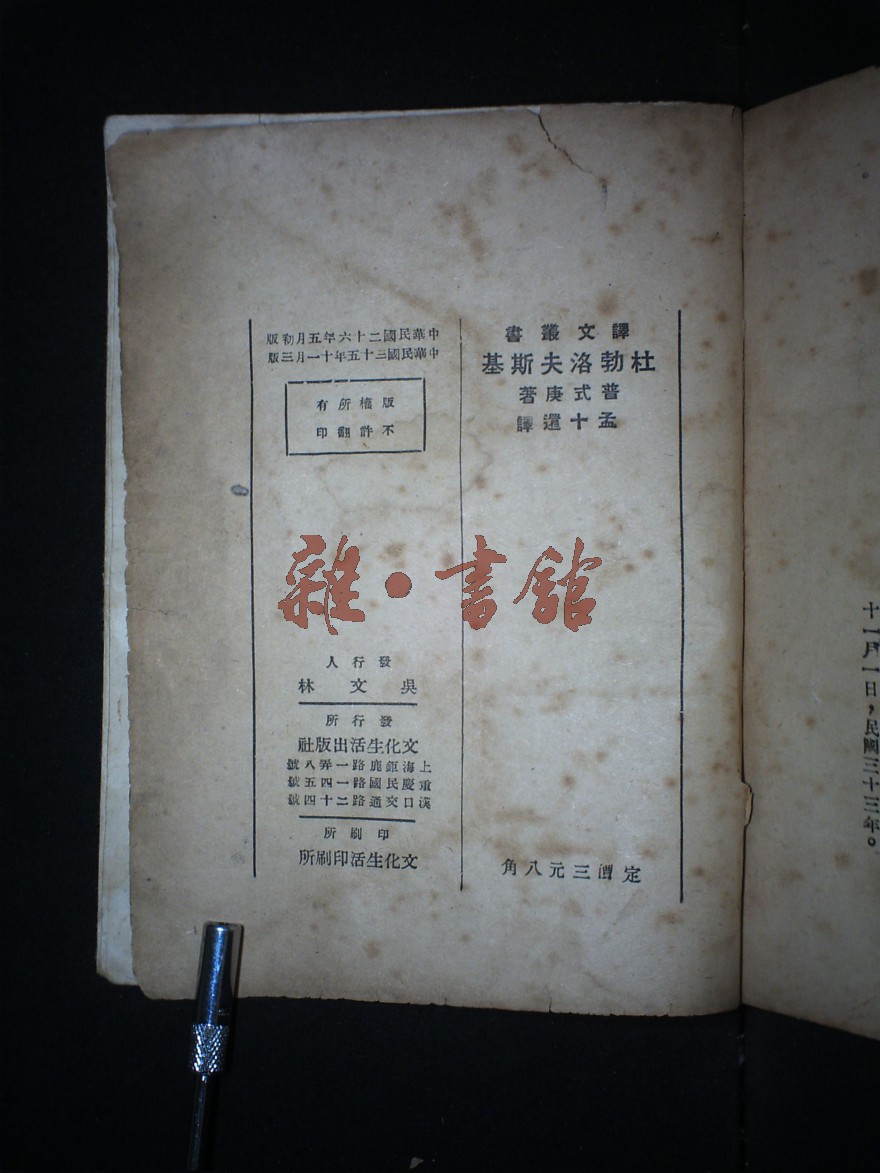 譯文叢書
杜勃洛夫斯基
普式庚著
孟十還譯
定價三元八角
中華民國二十六年五月初版
中華民國三十五年十一月三版
版權所有
不許翻印
發行人
吳文林
發行所
文化生活出版社
上海鉅鹿路一弄八號
重慶民國路一四五號
漢口交通路二十四號
印刷所
文化生活印刷所
雜·書館
十一月一日,民國三十三年。